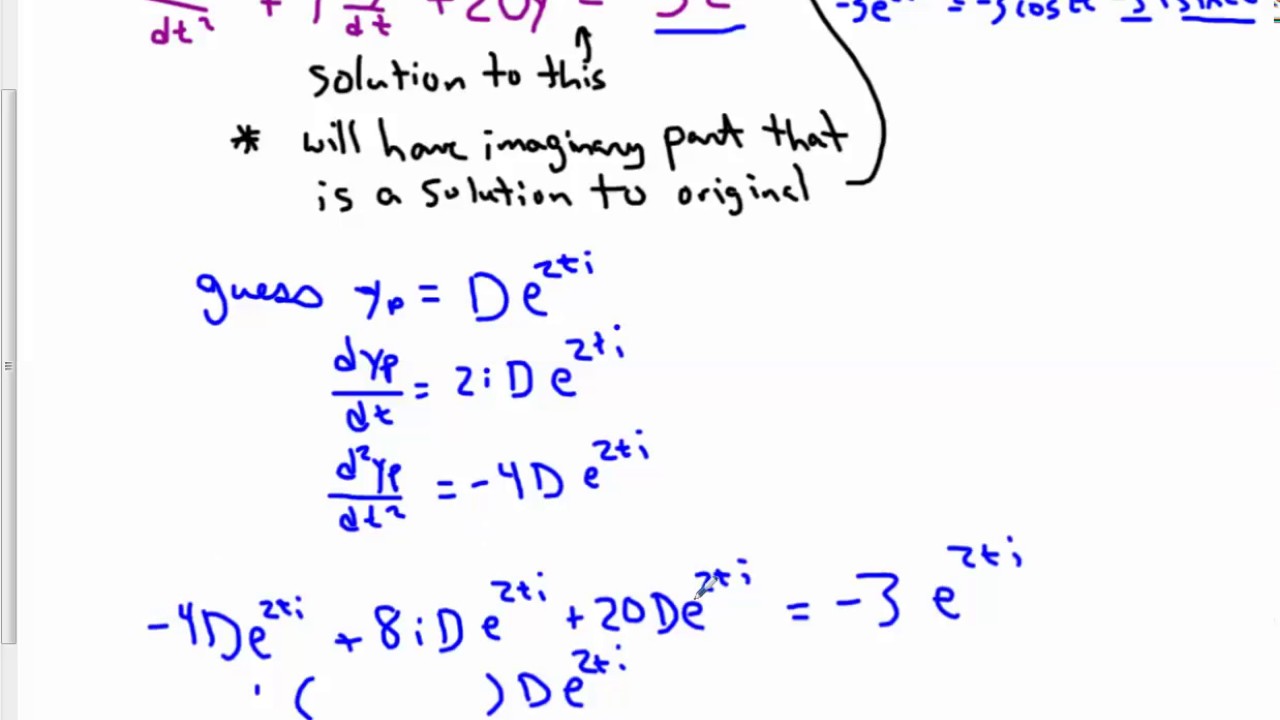 dt² dt + 20y =
solution to this
* will have imaginary part that
is a solution to original
guess yp = De^2ti
dyp/dt = 2iDe^2ti
d²yp/dt² = -4De^2ti
-4De^2ti + 8iDe^2ti + 20De^2ti = -3e^2ti
( ) De^2ti